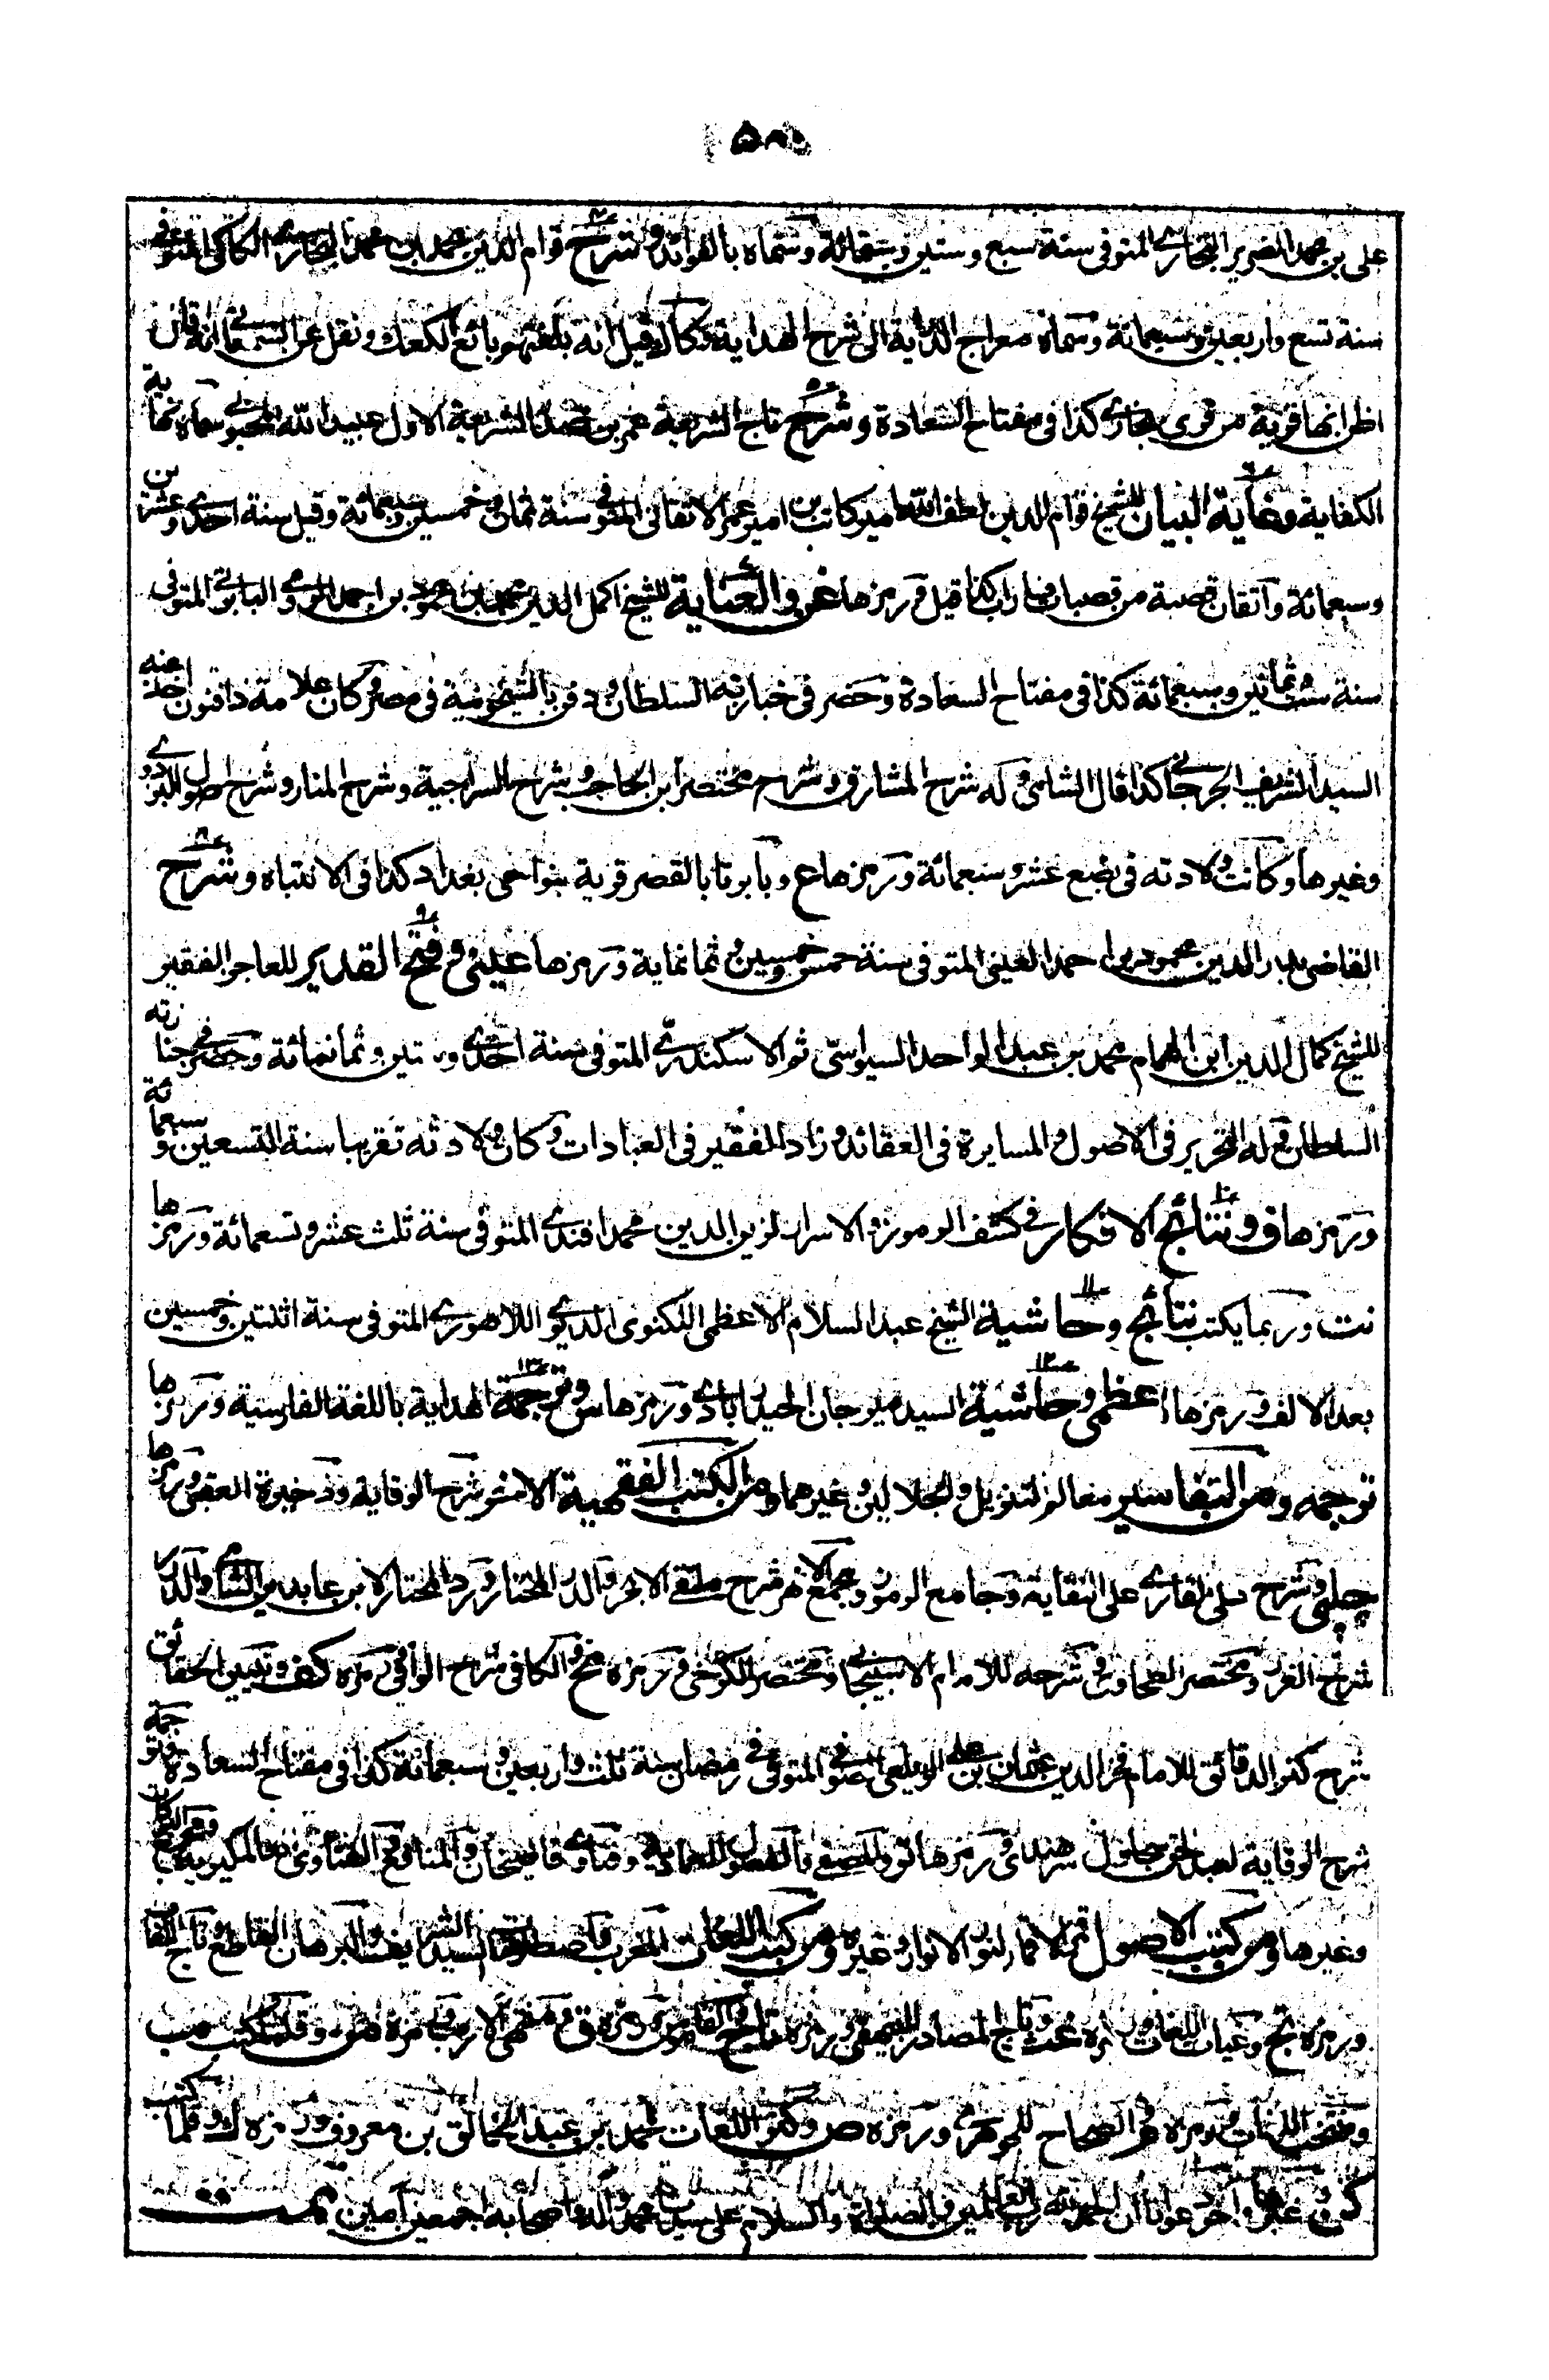 على بن محمد الضرير البخاري المتوفى سنة سبع وستين وستمائة وسماه بالفوائد وشرح قوام الدين محمد بن محمد البخاري الكاكي المتوفى
سنة تسع واربعين وسبعمائة وسماه معراج الدراية الى شرح الهداية وكاك قيل انه بلغتهم بائع الكعك ونقل عن السمعاني انه قال
اظن انها قرية من قرى بخارى كذا في مفتاح السعادة وشرح تاج الشريعة عمر بن صدر الشريعة الاول عبيد الله المحبوبي سماه نهاية
الكفاية وغاية البيان للشيخ قوام الدين لطف الله امير كاتب بن امير عمر الاتقاني المتوفى سنة ثمان وخمسين وسبعمائة وقيل سنة احدى وعشرين
وسبعمائة وآتقان قصبة من قصبات فاراب كذا قيل ورمزها غن والعناية للشيخ اكمل الدين محمد بن محمود بن احمد الرومي البابرتي المتوفى
سنة ست وثمانين وسبعمائة كذا في مفتاح السعادة وحضر في جنازته السلطان ودفن بالشيخونية في مصر وكان علامة ذا فنون اخذ عنه
السيد الشريف الجرجاني كذا قال الشامي وله شرح المشارق وشرح مختصر ابن الحاجب وشرح السراجية وشرح المنار وشرح اصول البزدوي
وغيرها وكانت ولادته في بضع عشر وسبعمائة ورمزها ع وبابرتا بالقصر قرية بنواحي بغداد كذا في الانتباه وشرح
القاضي بدر الدين محمود بن احمد العيني المتوفى سنة خمس وخمسين وثمانماية ورمزها عيني وفتح القدير للعاجز الفقير
للشيخ كمال الدين ابن الهمام محمد بن عبد الواحد السيواسي ثم الاسكندري المتوفى سنة احدى وستين وثمانمائة وحضر في جنازته
السلطان وله التحرير في الاصول والمسايرة في العقائد وزاد الفقير في العبادات وكان ولادته تقريبا سنة التسعين وسبعمائة
ورمزها ف ونتائج الافكار في كشف الرموز والاسرار لزين الدين محمد افندي المتوفى سنة ثلث عشر وتسعمائة ورمزها
نت وربما يكتب نتائج وحاشية الشيخ عبد السلام الاعظمي اللكنوي الديوي اللاهوري المتوفى سنة اثنتين وخمسين
بعد الالف ورمزها اعظمي وحاشية السيد مير جان الحيدرابادي ورمزها س وترجمة الهداية باللغة الفارسية ورمزها
ترجمه ومن التفاسير معالم التنزيل والجلالين وغيرهما ومن الكتب الفقهية الاخر شرح الوقاية وذخيرة العقبى ورمزها
چلپي وشرح على القاري على النقاية وجامع الرموز ومجمع الانهر شرح ملتقى الابحر والدر المختار ورد المحتار لابن عابدين الشامي والدرر
شرح الغرر ومختصر الطحاوي وشرحه للامام الاسبيجابي ومختصر الكرخي ورمزه مخ والكافي شرح الوافي رمزه كف وتبيين الحقائق
شرح كنز الدقائق للامام فخر الدين عثمان بن علي الزيلعي الصوفي المتوفى في رمضان سنة ثلث واربعين وسبعمائة كذا في مفتاح السعادة وترجمة
شرح الوقاية لعبد الحق سرهندي ورمزها تو والمصفى والفصول العمادية وفتاوى قاضيخان والمنافع والفتاوى العالمكيرية ومجمع البركات
وغيرها ومن كتب الاصول قمر الاقمار لنور الانوار وغيره ومن كتب اللغات المغرب واصطلاحات السيد الشريف والبرهان القاطع وتاج
ورمزه تج وغياث اللغات ورمزه غث وتاج المصادر للبيهقي ورمزه تاج والقاموس ورمزه ق ومنتهى الارب ورمزه وقلما كتب مب
ومنتخب اللغات ورمزه والصحاح للجوهري ورمزه ص وكنز اللغات لمحمد بن عبد الخالق بن معروف ورمزه ك وقلما كتب
كنز وغيرها وآخر دعوانا ان الحمد لله رب العالمين والصلوة والسلام على سيدنا محمد وآله واصحابه اجمعين آمين